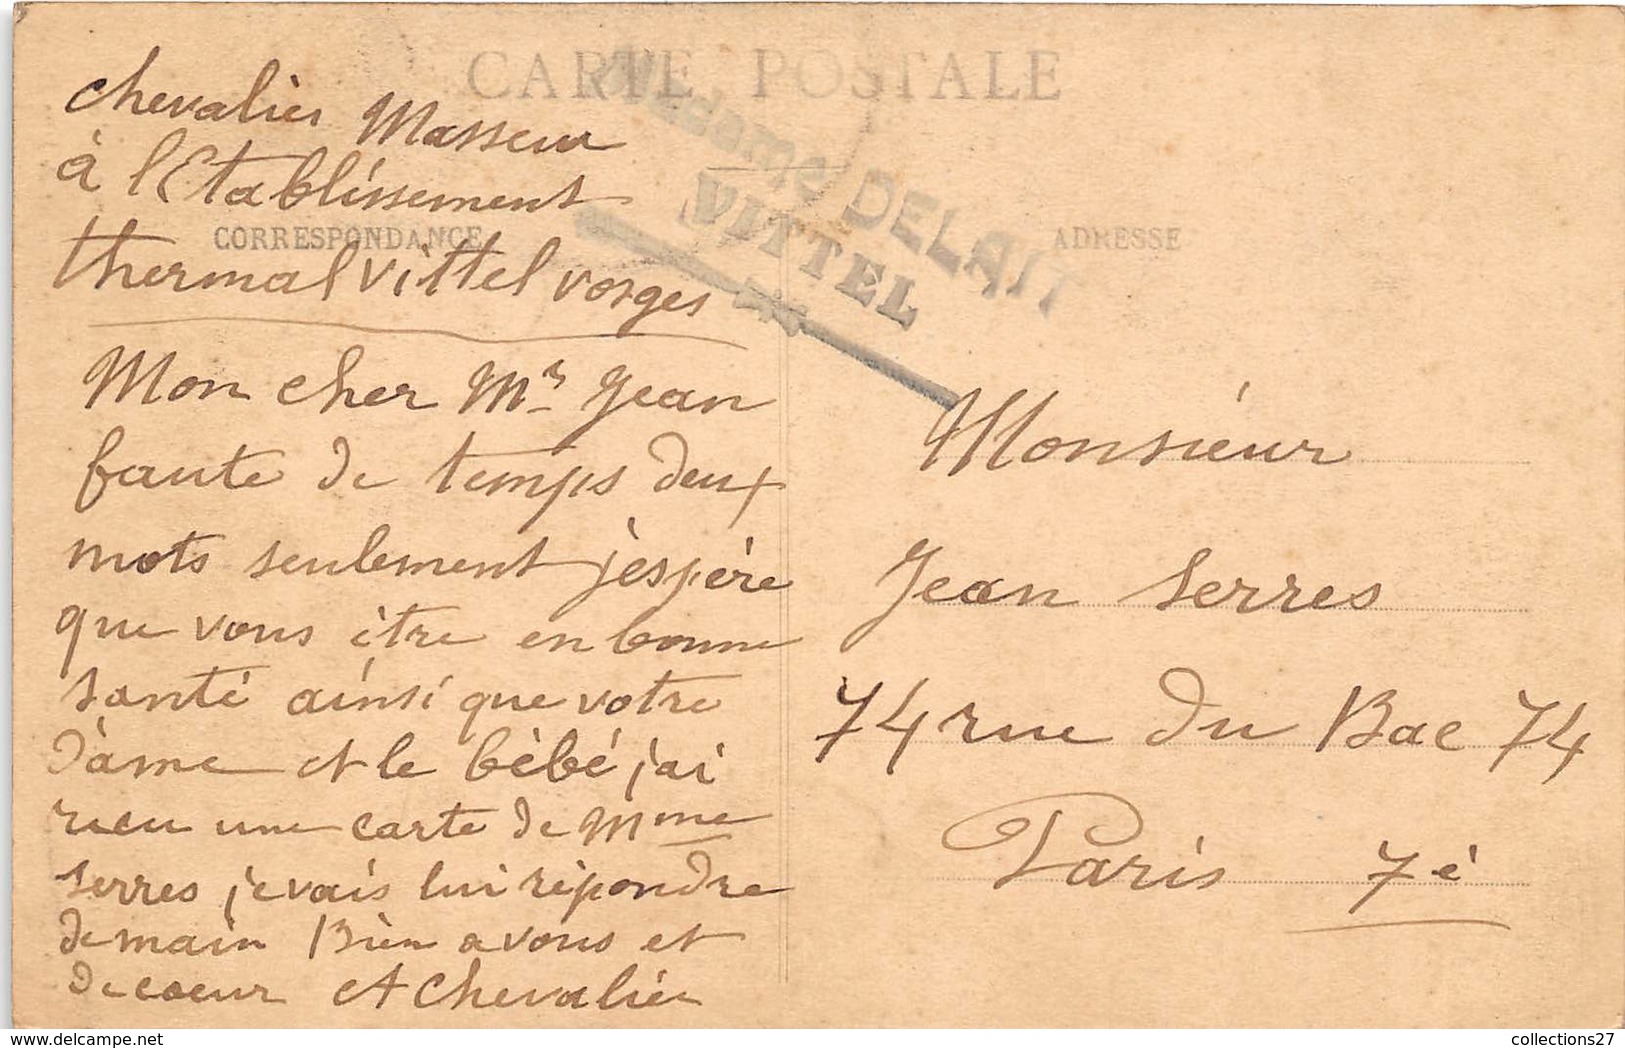 CARTE POSTALE
chevalier Masseur
à l'Etablissement
CORRESPONDANCE
thermal vittel vosges
Madame DELAIT
VITTEL
ADRESSE
Mon cher Mr Jean
faute de temps deux
mots seulement j'espère
que vous être en bonne
santé ainsi que votre
dame et le bébé, j'ai
recu une carte de Mme
serres, je vais lui répondre
demain Bien a vous et
de coeur A Chevalier
Monsieur
Jean Serres
74 rue du Bac 74
Paris 7è
http://www.delcampe.net
collections27